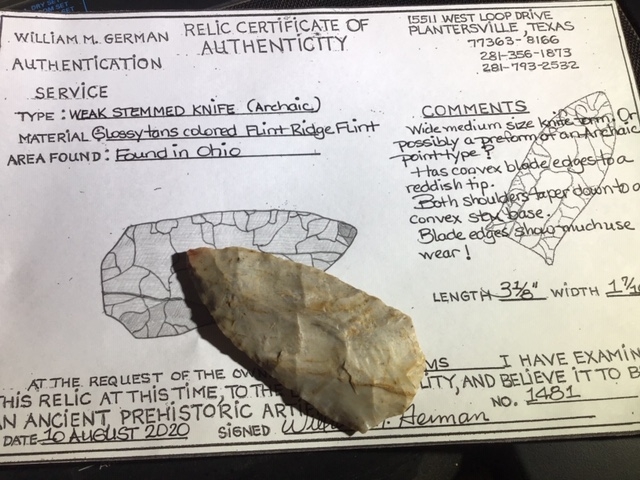 WILLIAM M. GERMAN
AUTHENTICATION
SERVICE
RELIC CERTIFICATE OF
AUTHENTICITY
15511 WEST LOOP DRIVE
PLANTERSVILLE, TEXAS
77363-8166
281-356-1873
281-793-2532
TYPE: WEAK STEMMED KNIFE (Archaic)
MATERIAL Glossy tans colored Flint Ridge Flint
AREA FOUND: Found in Ohio
COMMENTS
Wide medium size knife form. Or
possibly a preform of an Archaic
point type?
Has convex blade edges to a
reddish tip.
Both shoulders taper down to a
convex stem base.
Blade edges show much use
wear!
LENGTH 3 1/8" WIDTH 1
AT THE REQUEST OF THE I HAVE EXAMIN
THIS RELIC AT THIS TIME, TO THE ITY, AND BELIEVE IT TO B
AN ANCIENT PREHISTORIC NO. 1481
DATE 10 AUGUST 2020 SIGNED German